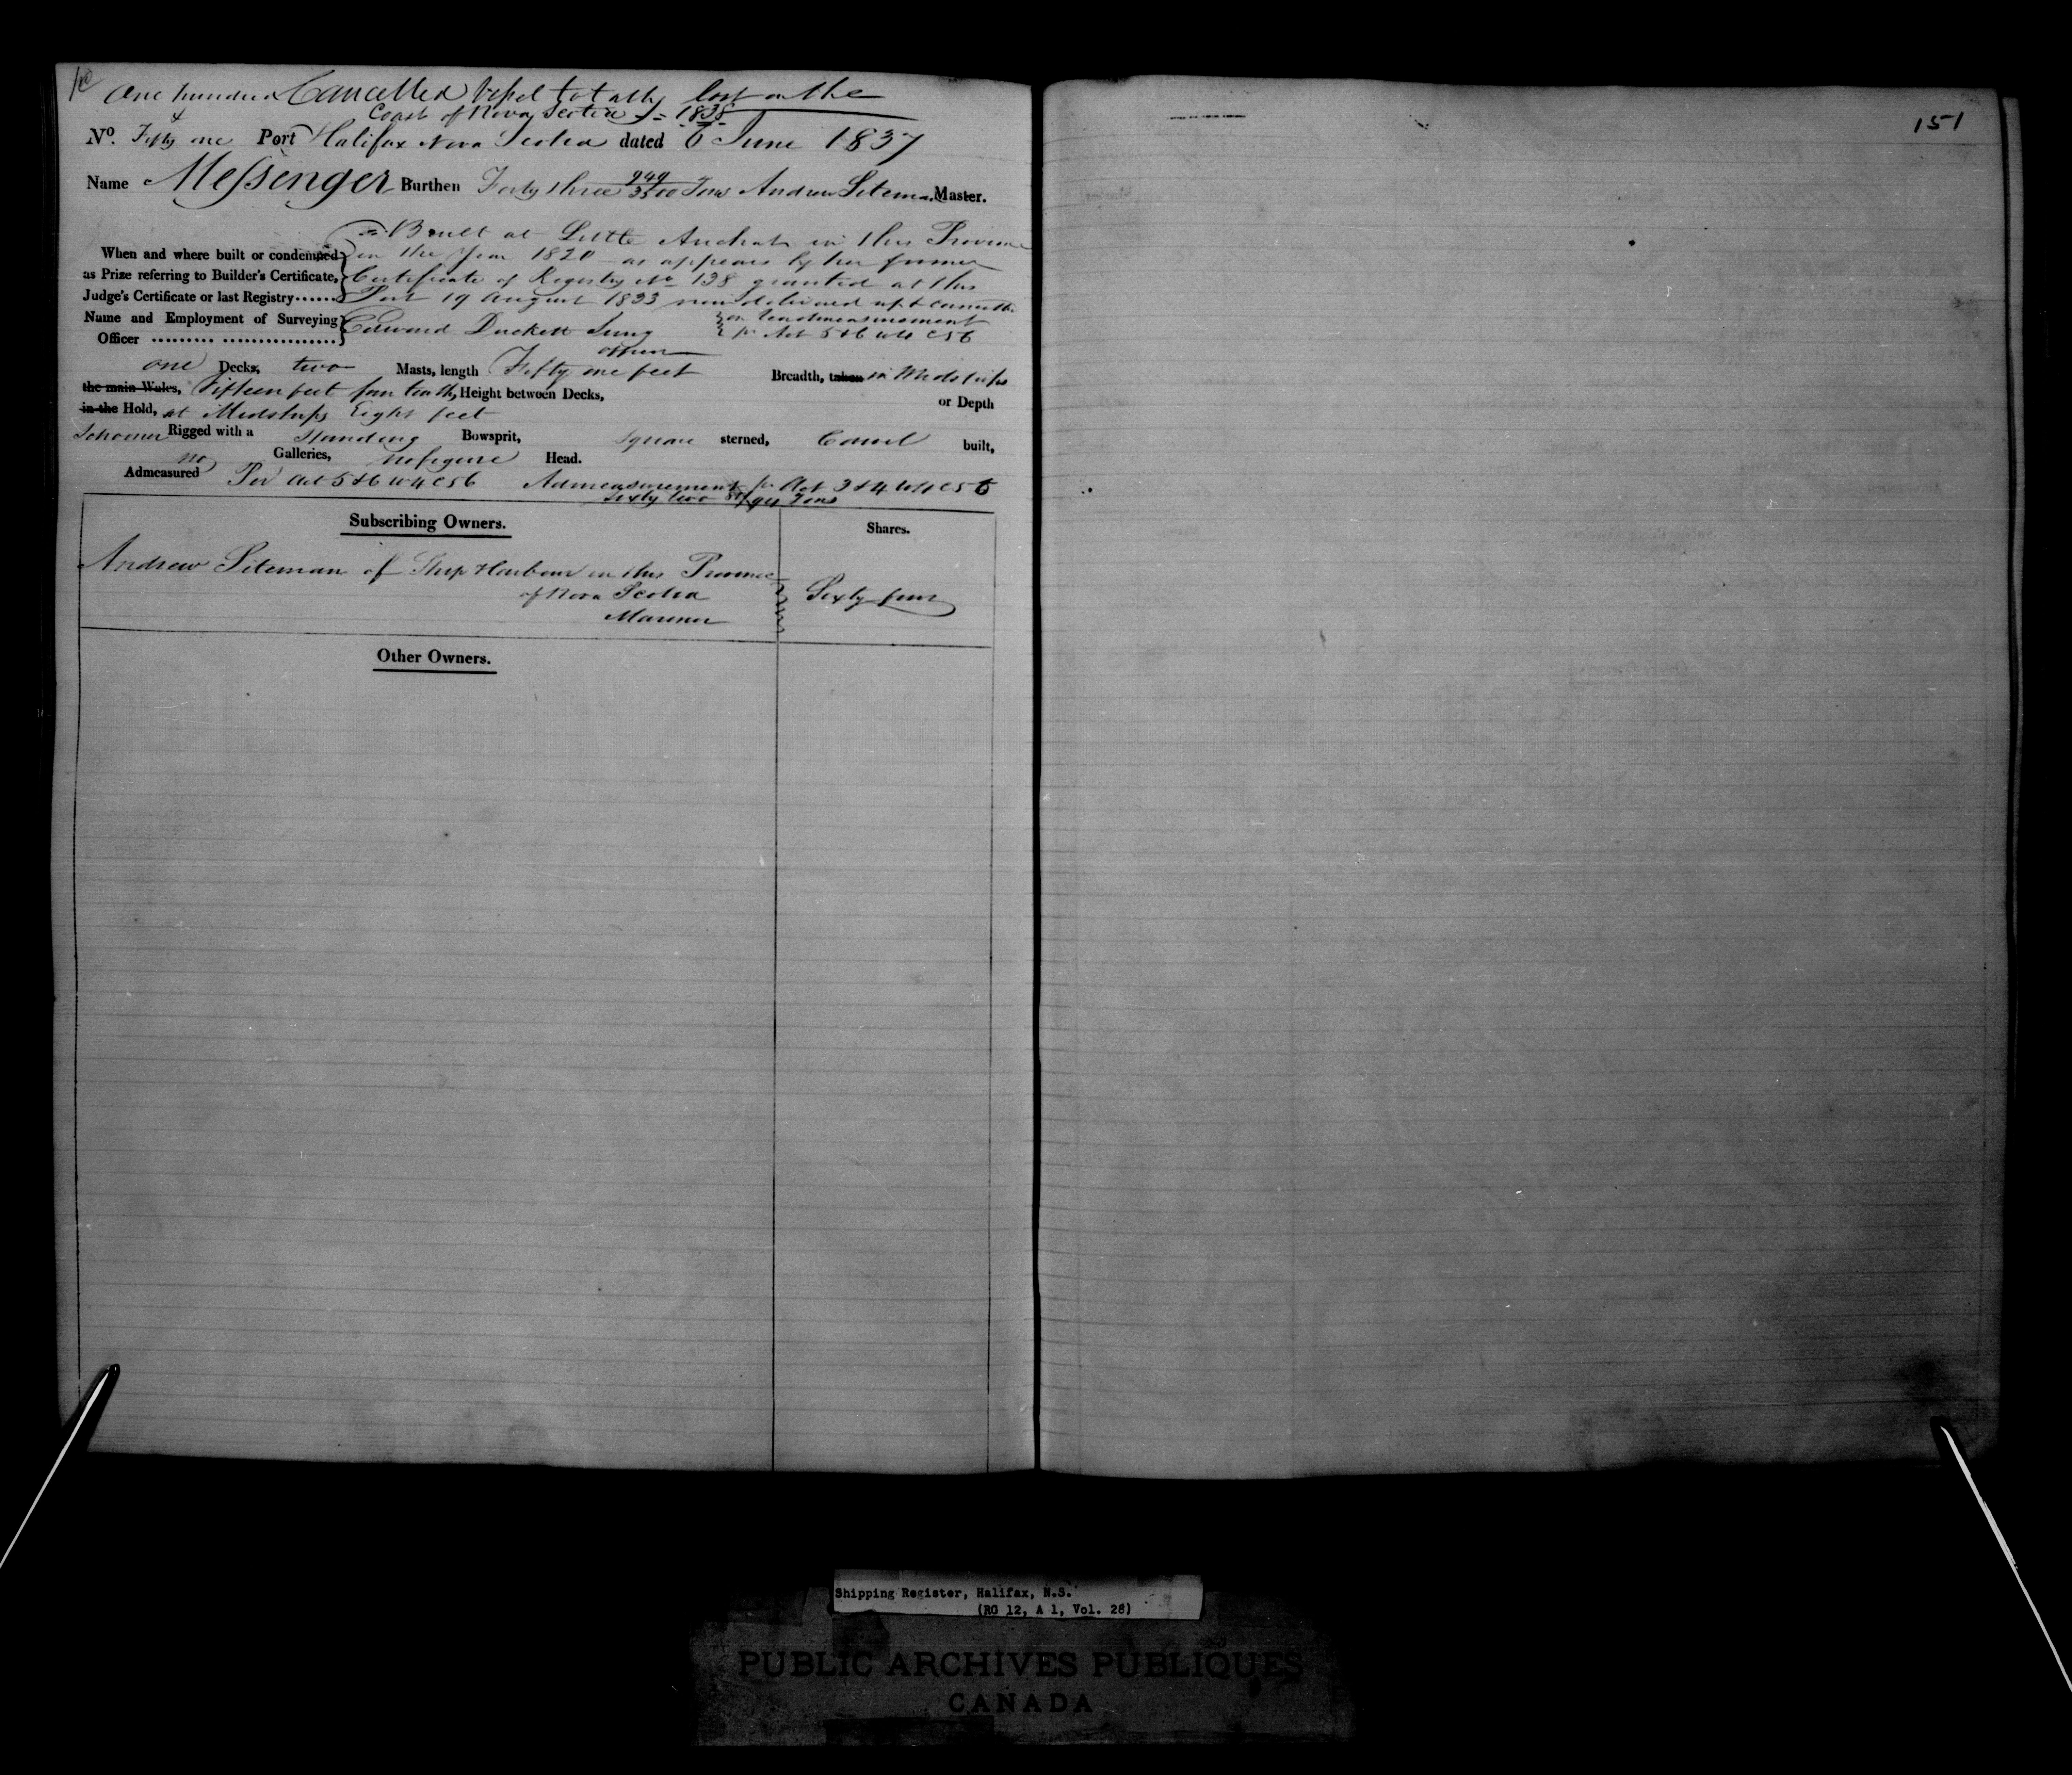 One hundred Cancelled Vessel totally lost on the
& Coast of Nova Scotia 1838
No. Fifty one Port Halifax Nova Scotia dated 6 June 1837
Name Messenger Burthen Forty three 949/3500 Tons Andrew Siteman Master.
Built at Little Arichat in this Province
When and where built or condemned in the Year 1820 as appears by her former
as Prize referring to Builder's Certificate, Certificate of Registry No 138 granted at this
Judge's Certificate or last Registry...... Port 19 August 1833 now delivered up & cancelled
Name and Employment of Surveying Edward Duckett Survg on Readmeasurement
Officer ......... ................. officer pr Act 5 & 6 W 4 C 56
one Decks, two Masts, length Fifty one feet Breadth, taken in Midships
the main Wales, Fifteen feet four tenths, Height between Decks, or Depth
in the Hold, at Midships Eight feet
Schooner Rigged with a Standing Bowsprit, Square sterned, Carvel built,
no Galleries, no figure Head.
Admeasured Per Act 5 & 6 W 4 C 56 Admeasurement pr Act 3 & 4 W 4 C 56
Sixty two /94 Tons
Subscribing Owners. Shares.
Andrew Siteman of Ship Harbour in this Province
of Nova Scotia Sixty four
Mariner
Other Owners.
151
Shipping Register, Halifax, N.S.
(RG 12, A 1, Vol. 28)
PUBLIC ARCHIVES PUBLIQUES
CANADA